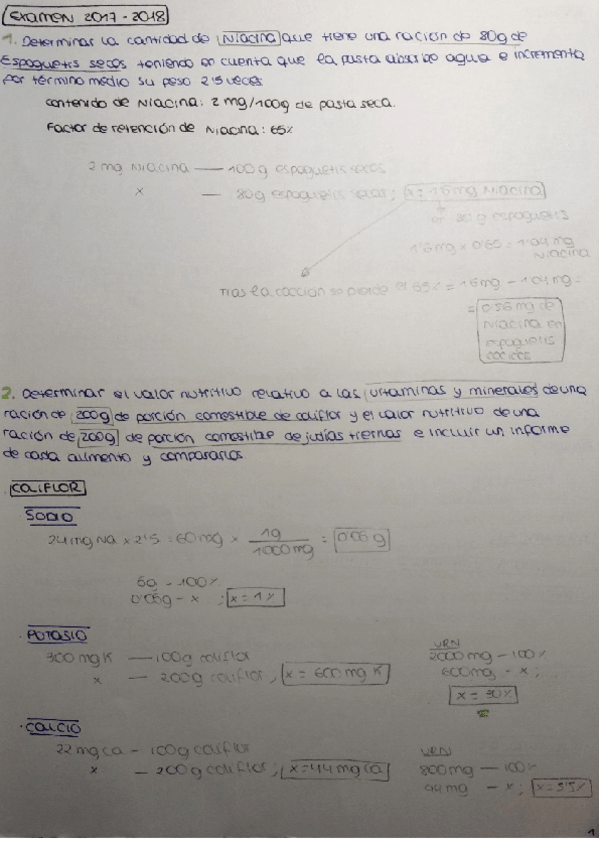 Examen 2017-2018
1. Determinar la cantidad de Niacina que tiene una ración de 80g de
Espaguetis secos teniendo en cuenta que la pasta absorbe agua e incrementa
por término medio su peso 2'5 veces
contenido de Niacina: 2 mg/100g de pasta seca.
Factor de retención de Niacina: 65%
2 mg Niacina — 100g espaguetis secos
x — 80g espaguetis secos; x = 1'6 mg Niacina
80g espaguetis
1'6mg x 0'65 = 1'04 mg
Niacina
Tras la cocción se pierde el 65% = 1'6mg - 1'04mg =
= 0'56 mg de
Niacina en
espaguetis
cocidos
2. Determinar el valor nutritivo relativo a las vitaminas y minerales de una
ración de 200g de porción comestible de coliflor y el valor nutritivo de una
ración de 200g de porción comestible de judías tiernas e incluir un informe
de cada alimento y compararlos
COLIFLOR
SODIO
24mg Na x 2'5 = 60mg x 1g/1000mg = 0'06 g
6g - 100%
0'06g - x ; x = 1%
· POTASIO
300mg K — 100g coliflor
x — 200g coliflor; x = 600mg K
VRN
2000mg - 100%
600mg - x;
x = 30%
· CALCIO
22 mg Ca - 100g coliflor
x - 200g coliflor; x = 44mg Ca
VRN
800mg — 100%
44mg - x; x = 5'5%
1